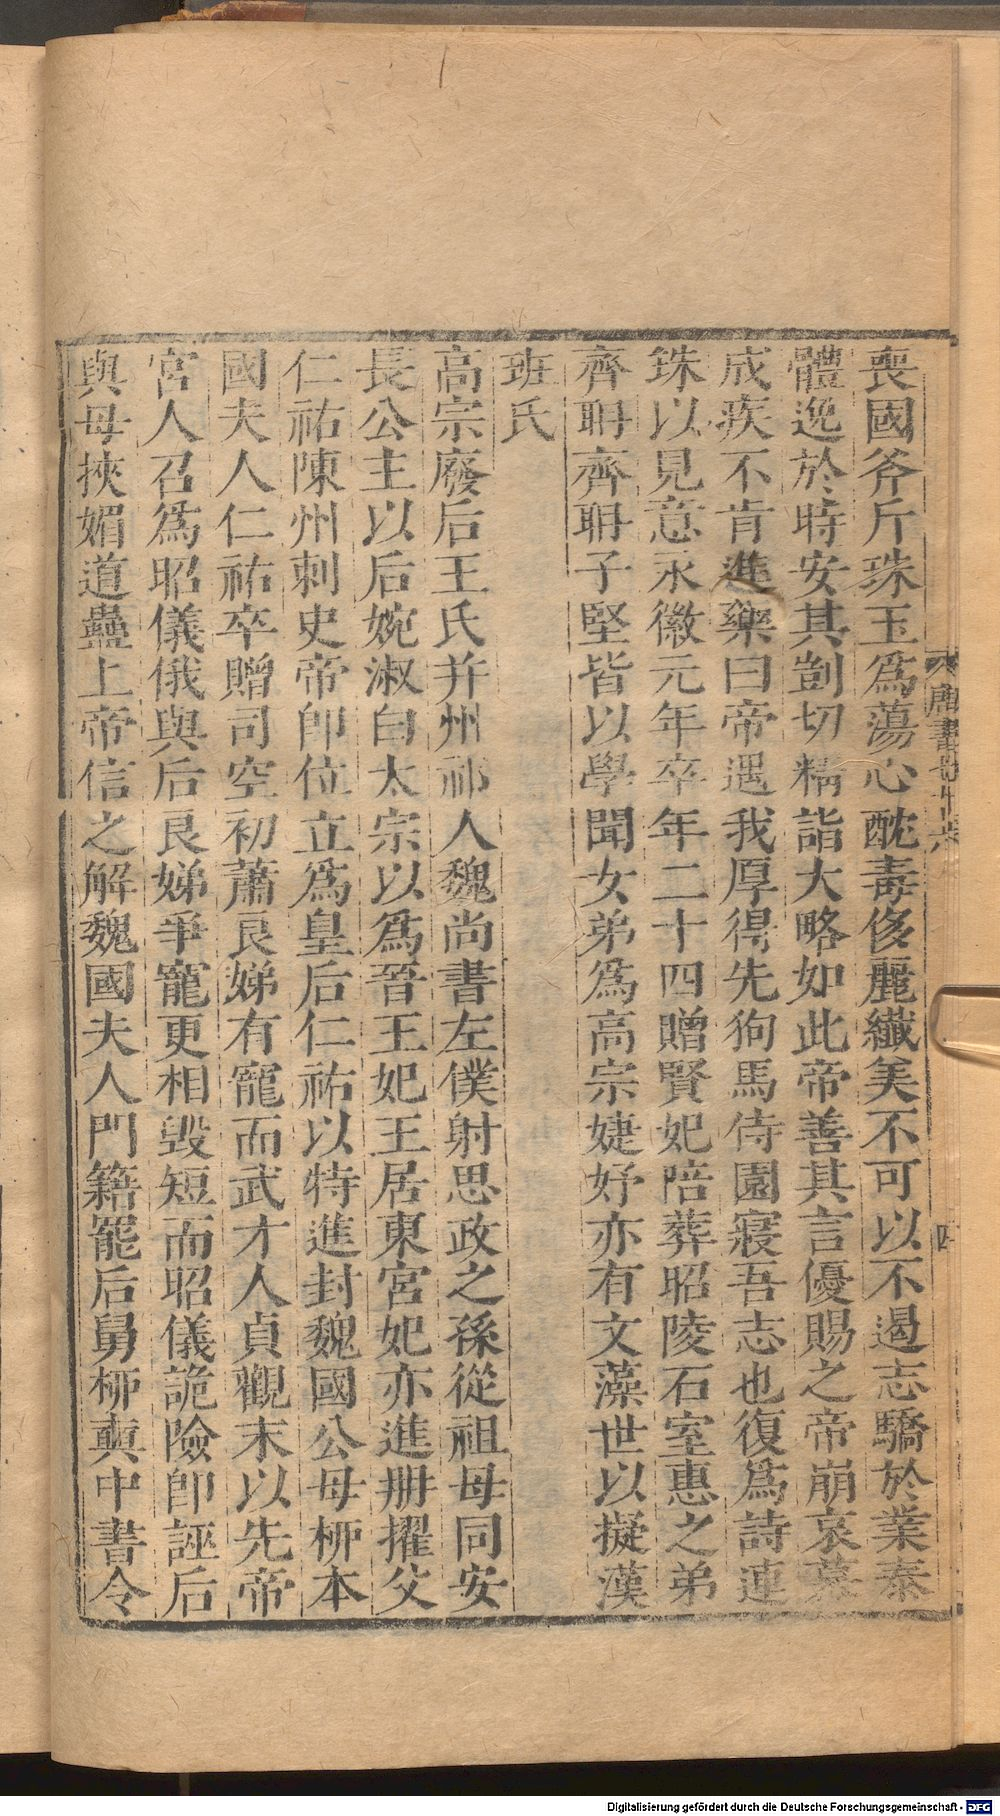 喪國斧斤珠玉爲蕩心酖毒侈麗纖美不可以不遏志驕於業泰
體逸於時安其剴切精詣大略如此帝善其言優賜之帝崩哀慕
成疾不肯進藥曰帝遇我厚得先狗馬侍園寢吾志也復爲詩連
珠以見意永徽元年卒年二十四贈賢妃陪葬昭陵石室惠之弟
齊聃齊聃子堅皆以學聞女弟爲高宗婕妤亦有文藻世以擬漢
班氏
高宗廢后王氏并州祁人魏尚書左僕射思政之孫從祖母同安
長公主以后婉淑白太宗以爲晉王妃王居東宮妃亦進册擢父
仁祐陳州刺史帝卽位立爲皇后仁祐以特進封魏國公母柳本
國夫人仁祐卒贈司空初蕭良娣有寵而武才人貞觀末以先帝
宮人召爲昭儀俄與后良娣爭寵更相毀短而昭儀詭險卽誣后
與母挾媚道蠱上帝信之解魏國夫人門籍罷后舅柳奭中書令
唐書七十六
四
Digitalisierung gefördert durch die Deutsche Forschungsgemeinschaft - DFG